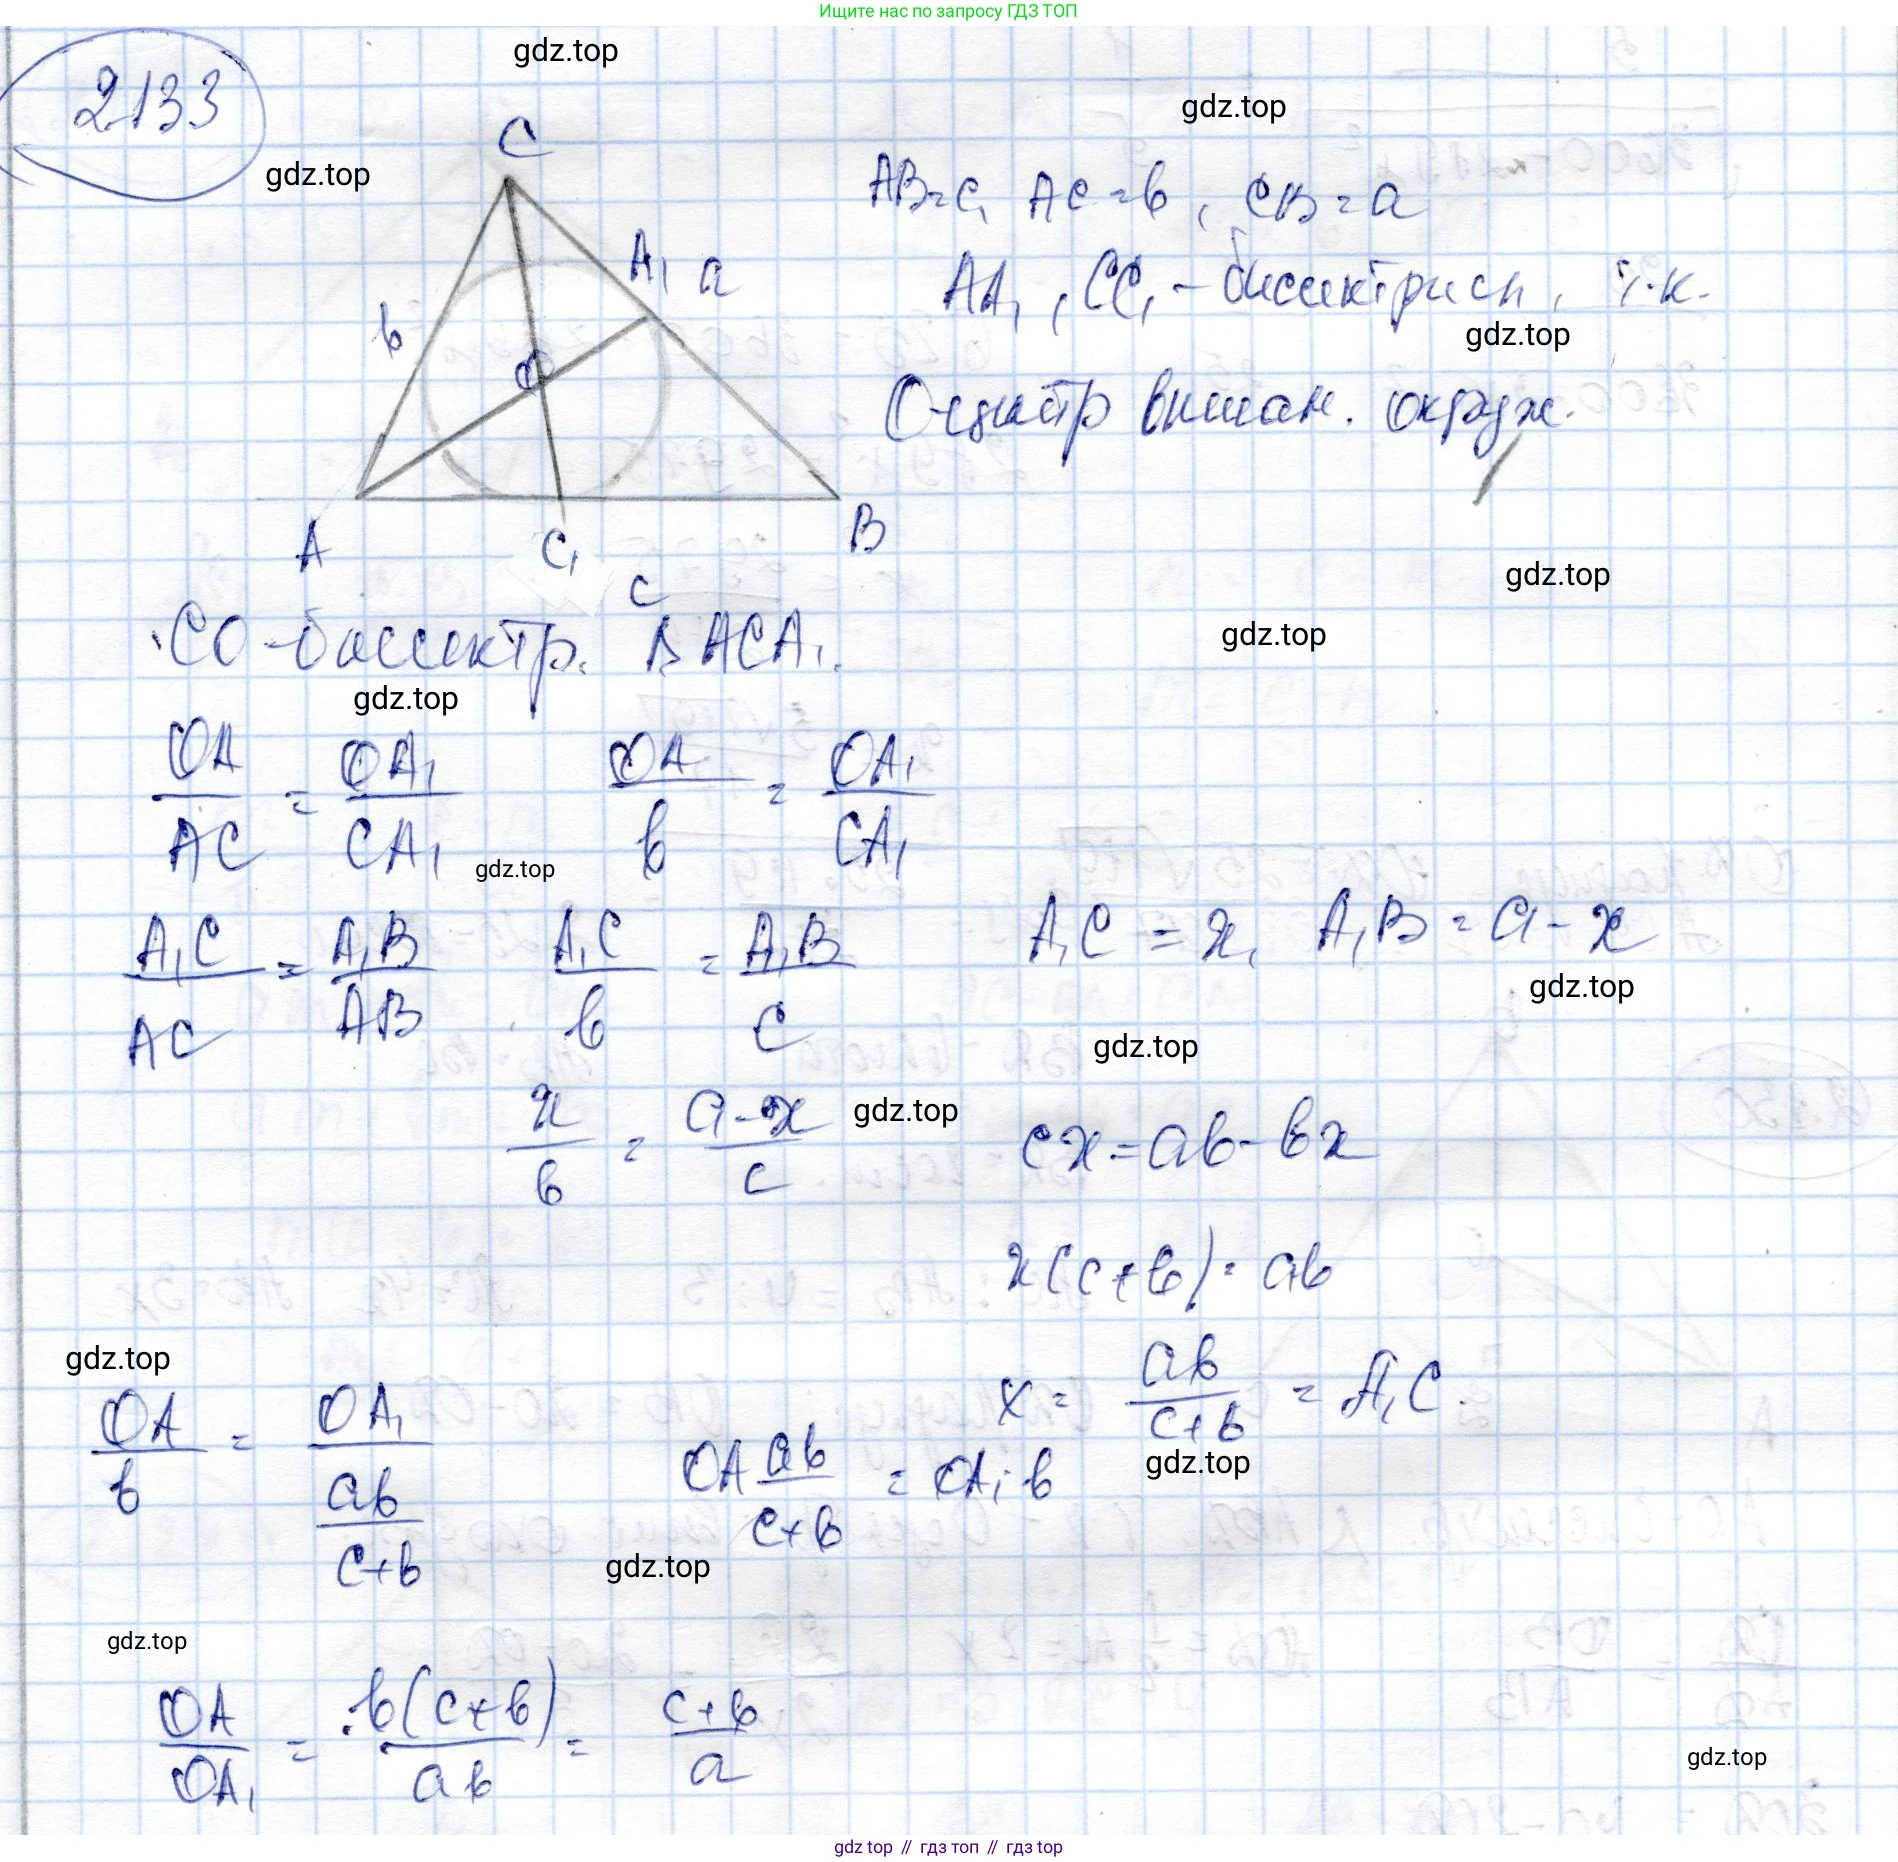 Ищите нас по запросу ГДЗ ТОП
gdz.top
2133
gdz.top
gdz.top
C
AB=c, AC=b, CB=a
A₁ a
AA₁, CC₁ - биссектрисы, т.к.
b
gdz.top
O
O-центр вписан. окруж.
A C₁ B
c
gdz.top
gdz.top
CO-биссектр. в ACA₁.
gdz.top
OA/AC = OA₁/CA₁ OA/b = OA₁/CA₁
gdz.top
A₁C/AC = A₁B/AB A₁C/b = A₁B/c A₁C = x, A₁B = a-x
gdz.top
gdz.top
x/b = (a-x)/c gdz.top cx=ab-bx
x(c+b)=ab
gdz.top
x = ab/(c+b) = A₁C.
gdz.top
OA/b = OA₁/(ab/(c+b)) OA ab/(c+b) = OA₁·b
gdz.top
gdz.top
OA/OA₁ = b(c+b)/ab = (c+b)/a
gdz.top
gdz top // гдз топ // гдз top